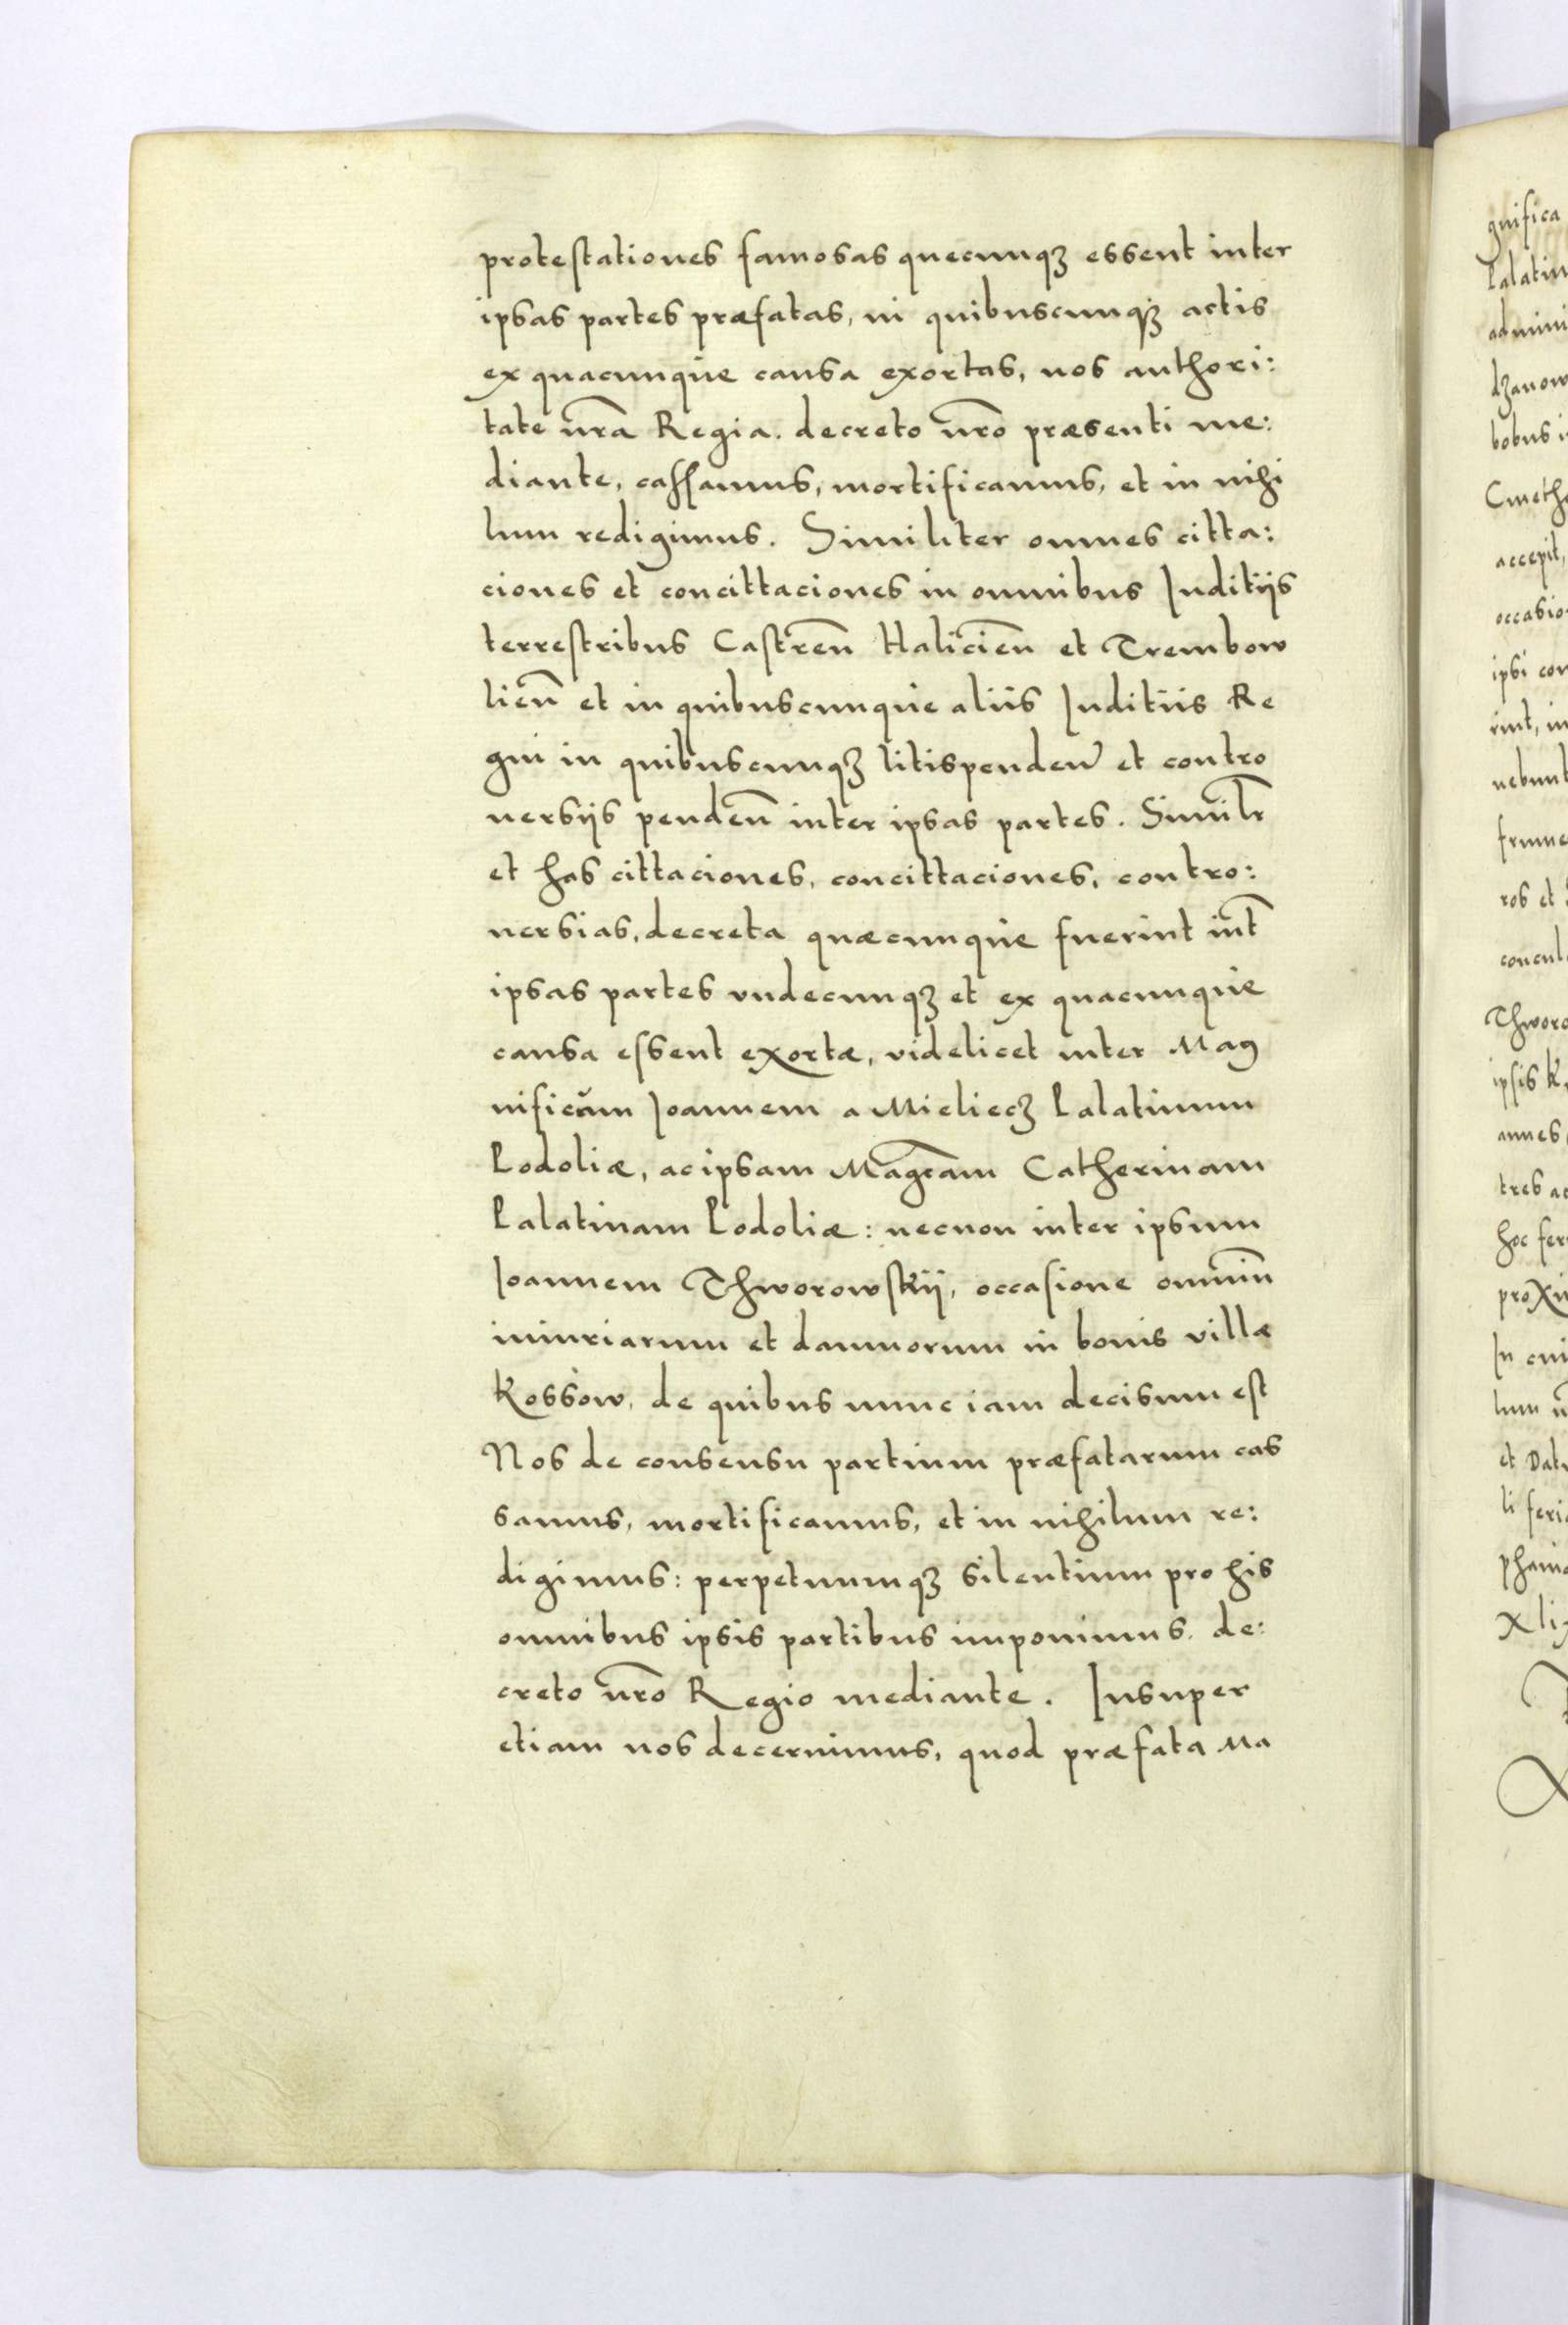 protestationes famosas quecunqꝫ essent inter
ipsas partes præfatas, in quibuscunqꝫ actis
ex quacunque causa exortas, nos authori:
tate nr̃a Regia. decreto nr̃o præsenti me:
diante, caſſamus, mortificamus, et in nihi
lum redigimus. Similiter omnes citta:
ciones et concittaciones in omnibus Juditijs
terreſtribus Caſtren̄ Halicien̄ et Trembow
lien̄ et in quibuscunque aliis Juditiis Re
gni in quibuscunqꝫ litispenden̄ et contro
uersijs penden̄ inter ipsas partes. Similr̄
et has cittaciones, concittaciones, contro:
uersias, decreta quæcunque fuerint int̄
ipsas partes vndecunqꝫ et ex quacunque
causa eſsent exortæ, videlicet inter Mag
nificũm Joannem a Mieliecꝫ Palatinum
Podoliæ, ac ipsam Magc̄am Catherinam
Palatinam Podoliæ: necnon inter ipsum
Joannem Thworowſkij, occaſione omniū
iniuriarum et damnorum in bonis villæ
Kossow, de quibus nunc iam decisum eſt
Nos de consensu partium præfatarum cas
samus, mortificamus, et in nihilum re:
digimus: perpetuumqꝫ silentium pro his
omnibus ipsis partibus imponimus. de:
creto nr̃o Regio mediante. Insuper
etiam nos decernimus, quod præfata Ma
gnifica
Palatin
admini
dzanow
bobus i
Cmetho
accepit,
occasio
ipsi con
rint, in
nebunt
frume
ros et
concul
Thworo
ipſis K
annes
tres ac
hoc fer
proxi
In cui
lum
et Dat
li feri
phani
Xli